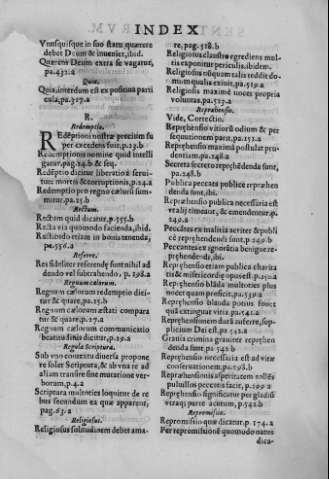 INDEX
Vnusquisque in suo statu quærere
debet Deum & inueniet, ibid.
Quærens Deum extra se vagatur,
pa.432.a
Quia.
Quia, interdum est ex positiua parti
cula, pa.317.a
R.
Redemptio.
REdēptionis nostræ precium su
per excedens fuit, p.23.b
Redemptionis nomine quid intelli
gatur, pag.24.b & seq.
Redēptio dicitur liberatio à serui-
tute mortis & corruptionis, p.24.a
Redemptio pro regno cælius sum-
mitur, pa.25.b
Rectum.
Rectum quid dicatur, p.355.b
Recta via quomodo facienda, ibid.
Rectitudo etiam in bonis tenenda,
pa.556.a
Referre.
Res fideliter referendę sunt nihil ad
dendo vel subtrahendo, p.198.a
Regnum cælorum.
Regnum cælorum redemptio dici-
tur & quare, pa.25.b
Regnum cælorum æstati compara
tur & quare, p.27.a
Regnum cælorum communicatio
beatitudinis dicitur, p.139.a
Regula Scripturæ.
Sub vno contextu diuersa propone
re solet Scriptura, & ab vna re ad
aliam transire sine mutatione ver-
borum, p.4.a
Scriptura multoties loquitur de re
bus secundum ea quæ apparent,
pag.63.a
Religiosus.
Religiosus solitudinem debet ama-
re, pag.518.b
Religiosus claustro egrediens mul-
tis exponitur periculis, ibidem.
Religiosus nisquam talis reddit do
mum qualis exiuit, pa.519.a
Religiosis maximè nocet propria
voluntas, pa.523.a
Reprehensio.
Vide, Correctio.
Reprehensio vitiorū odium & per
sequutionem parit, pa.152.a
Reprehensio maxima postulat pru-
dentiam, pa.248.a
Secretè secreta repręhēdenda sunt,
pa.248.b
Publica peccata publicè repræhen
denda sunt, ibi.
Reprehensio publica necessaria est
vt alij timeant, & emendentur, p.
249.a
Peccātes ex malitia acriter & publi
cè repręhendendi sunt, p.249.b
Peccantes ex ignorātia benigne re-
pręhendendi, ibi.
Repręhensio etiam publica charita
tis & misericordię opus est, p.250.a
Reprehensio blāda multoties plus
nocet quam proficit, pa.539.b
Reprehensio blanda potius fouet
quā extinguat vitia, pa.541.a
Repręhensionem durā auferre, sup-
plicium Dei est, pa.542.a
Grauia crimina grauiter repręhen
denda sunt, pa.542.b
Repręhensio necessaria est ad vitæ
conseruationem, pa.598.b
Repręhensionis asperitatem
pusillus peccatis facit, p.599.a
Repręhensio significatur per gladiū
vtraque parte acutum, p.542.b
Repromissio.
Repromissio quæ dicatur, p.174.a
Per repromissionē quomodo nomē
dica-